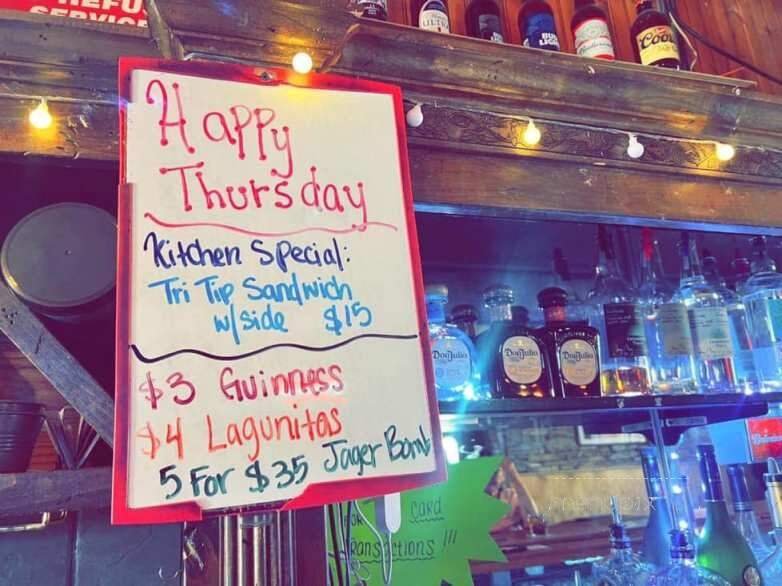 REFU
SERVICE
ULTRA
BUD
LIGHT
Budweiser
Coors
Happy
Thursday
Kitchen Special:
Tri Tip Sandwich
w/side $15
$3 Guinness
$4 Lagunitas
5 For $35 Jager Bomb
Don Julio
Don Julio
Don Julio
FOR
card
ransactions!!!